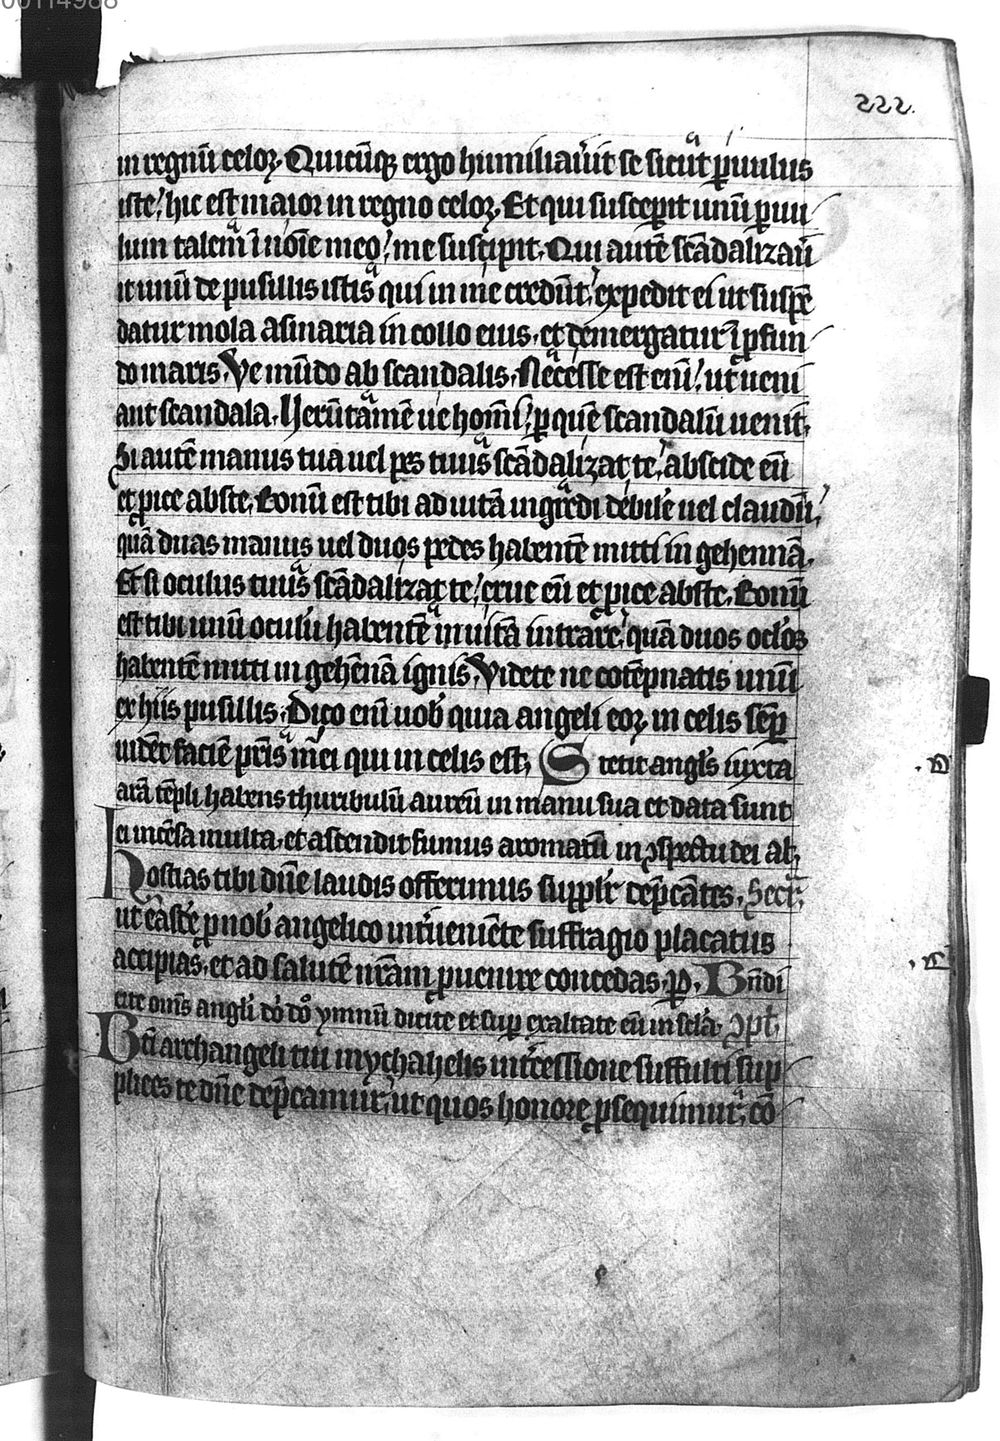 00114988
222.
in regnū celoꝝ. Quicūqꝫ ergo humiliau̾it se sicut ꝑuulus
iste / hic est maior in regno celoꝝ. Et qui susceꝑit unū ꝑuu
lum talem ī noīe meo / me suscipit. Qui autē scādalizau̾
it unū de pusillis istis qui in me credūt / expedit ei ut suspē
datur mola asinaria in collo eius. et demergatur ī ꝓfun
do maris. Ve mūdo ab scandalis. Necesse est enī / ut ueni
ant scandala. Uerūtamē ue homī / ꝑ quē scandalū uenit.
Si autē manus tua uel pes tuus scādalizat te / abscide eū
et ꝓice abs te. Bonū est tibi ad uitā ingredi debilē uel claudū /
quā duas manus uel duos pedes habentē mitti in gehennā.
Et si oculus tuus scādalizat te / erue eū et ꝓice abs te. Bonū
est tibi unū oculū habentē in uitā intrare / quā duos oclos
habentē mitti in gehēnā ignis. Videte ne cotēpnatis unū
ex hiis pusillis. Dico enī uob̾ quia angeli eoꝝ in celis semꝑ
uidēt faciē pr̄is mei qui in celis est. Stetit angl̾s iuxta
arā tēpli habens thuribulū aureū in manu sua et data sunt
ei incēsa multa. et ascendit fumus aromatū in ꝯspectu dei al̾.
Hostias tibi dn̄e laudis offerimus suppl̾r dep̄cātes. Secr̄.
ut easdē ꝓ nob̾ angelico int̾ueniēte suffragio placatus
accipias. et ad salutē nr̄am ꝓuenire concedas. ꝑ. Bn̄di
cite om̄s angl̾i dn̄i dn̄o ymnū dicite et suꝑ exaltate eū in scl̾a. ꝯpl̾.
Bt̄i archangeli tui mychahelis int̾cessione suffulti sup
plices te dn̄e dep̄camur / ut quos honore ꝓsequimur. cō